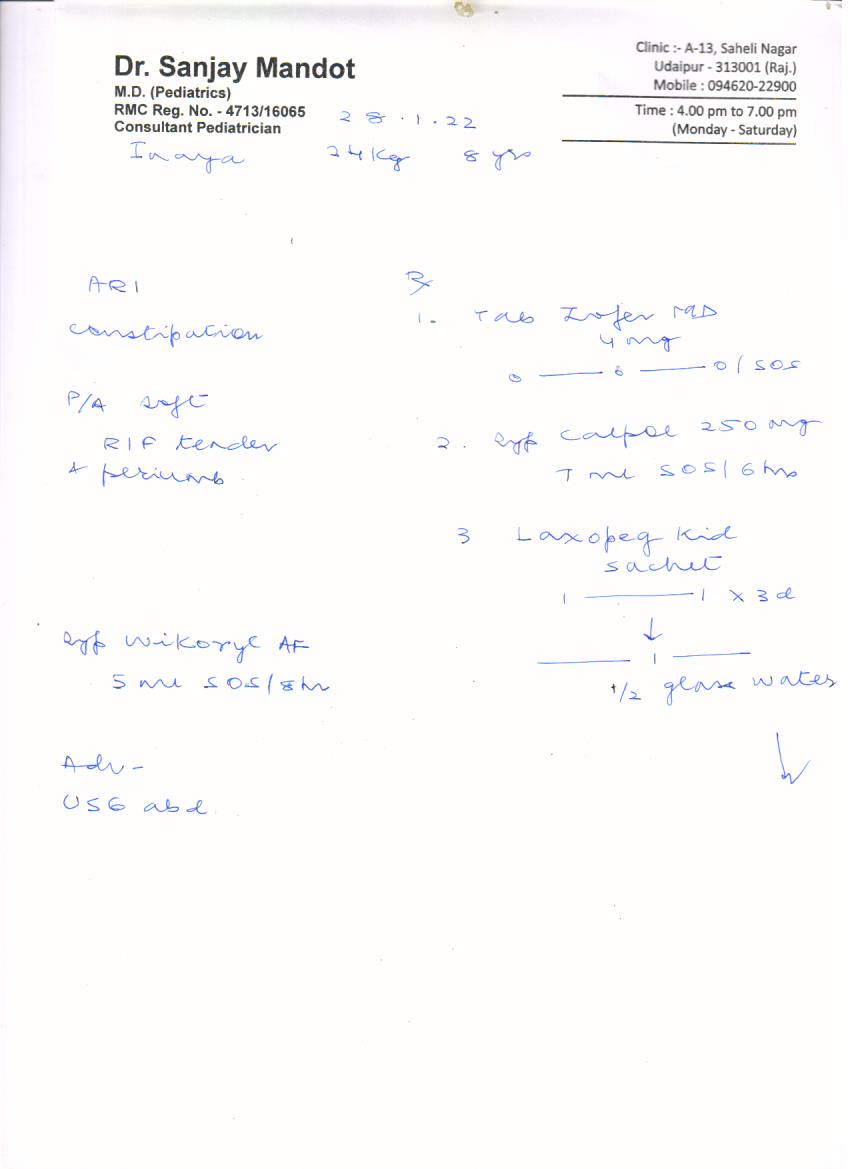 Dr. Sanjay Mandot
M.D. (Pediatrics)
RMC Reg. No. - 4713/16065
Consultant Pediatrician
Clinic :- A-13, Saheli Nagar
Udaipur - 313001 (Raj.)
Mobile : 094620-22900
Time : 4.00 pm to 7.00 pm
(Monday - Saturday)
28.1.22
Inaya 24Kg 8 yrs
ARI
Constipation
P/A soft
RIF tender
+ periumb
Syp Wikoryl AF
5 ml SOS/8hr
Adv-
USG abd
Rx
1. Tab MD
4 mg
0 — 0 — 0/SOS
2. Syp Calpol 250 mg
7 ml SOS/6 hrs
3 Laxopeg Kid
sachet
1 — 1 x 3 d
↓
— 1 —
1/2 glass water